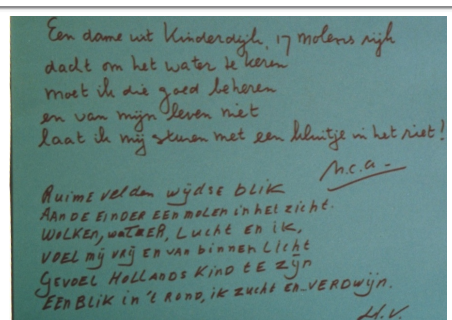 Een dame uit Kinderdijk, 17 molens rijk
dacht om het water te keren
moet ik die goed beheren
en van mijn leven niet
laat ik mij sturen met een kluitje in het riet!
n.c.a.
Ruime velden wijdse blik
AAN DE EINDER EEN molen in het zicht.
WOLKEN, waTER, LUCHT EN ik,
VOEL mij vrij EN VAN binnen Licht
GEVOEL HOLLANDS Kind TE zijn
EEN Blik in 't rond, ik zucht en verdwijn.
H.V.